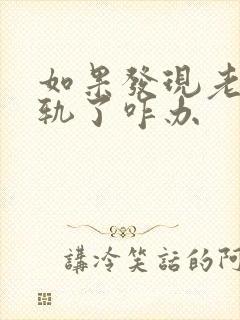 如果發現老
軌了咋办
講冷笑話的阿